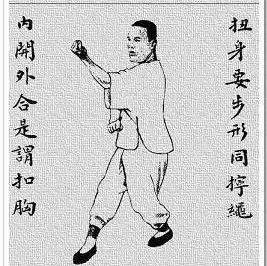 扭身要步形同擰繩
內開外合是謂扣胸